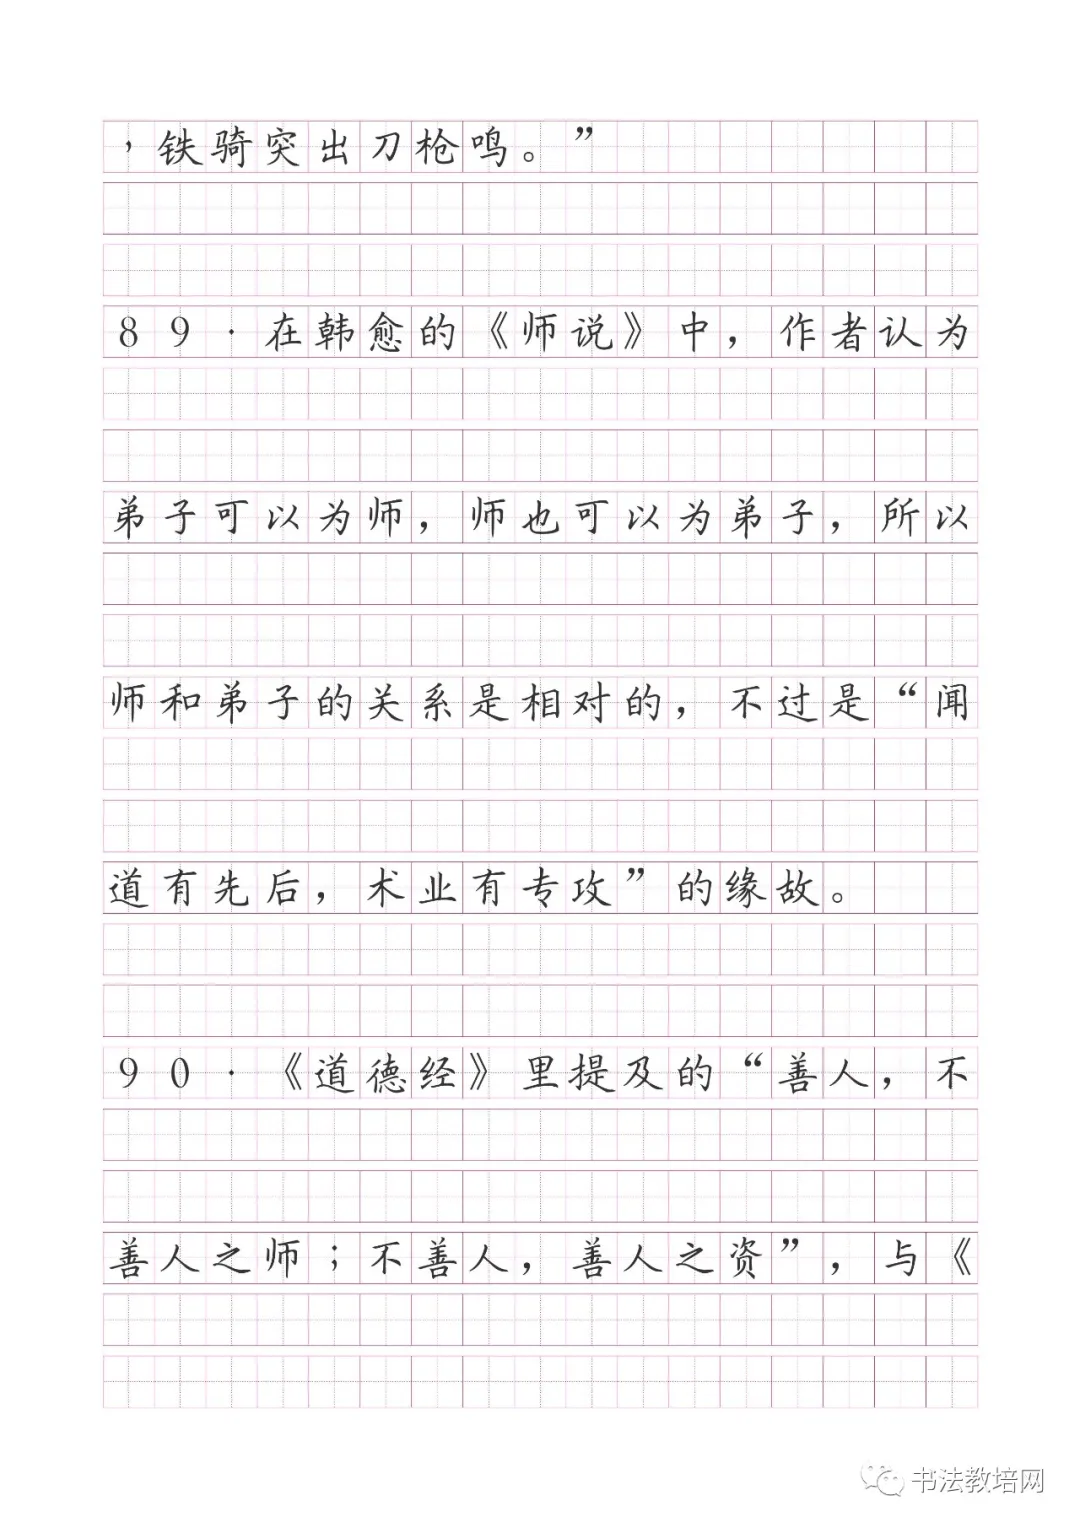 ，铁骑突出刀枪鸣。”
89·在韩愈的《师说》中，作者认为
弟子可以为师，师也可以为弟子，所以
师和弟子的关系是相对的，不过是“闻
道有先后，术业有专攻”的缘故。
90·《道德经》里提及的“善人，不
善人之师；不善人，善人之资”，与《
书法教培网